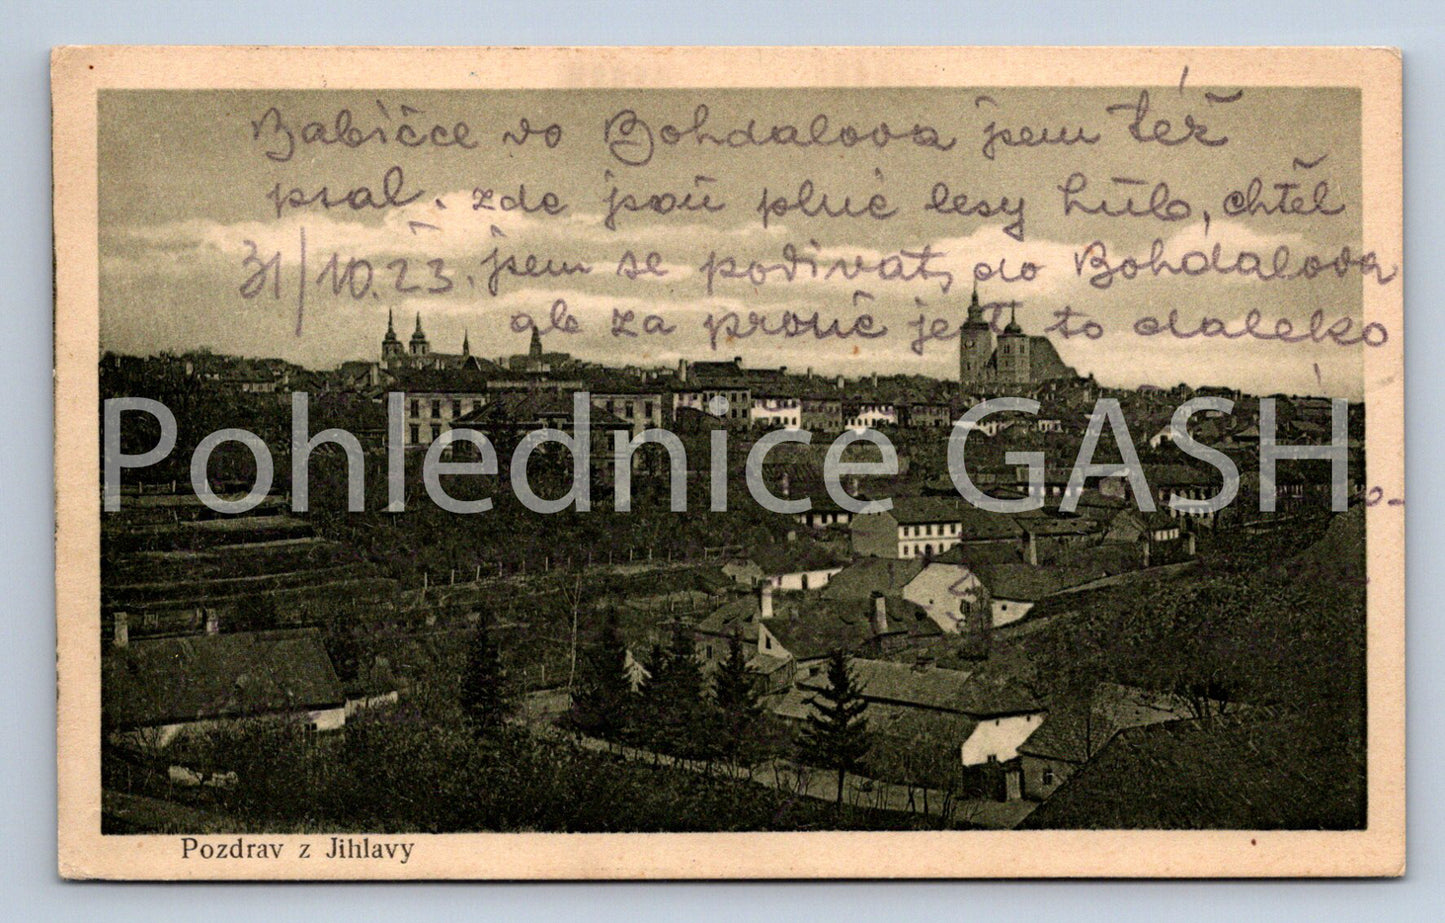 Babičce do Bohdalova jsem též
psal. zde jsou plné lesy hub, chtěl
31/10.23. jsem se podívat do Bohdalova
ale za prouč je to daleko
Pohlednice GASH
Pozdrav z Jihlavy